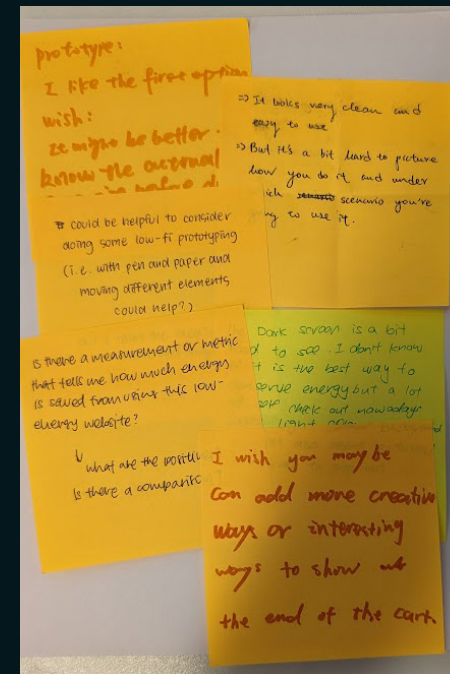 prototype:
I like the first option
wish:
It might be better.
know the
=> It looks very clean and
easy to use
=> But it's a bit hard to picture
how you do it and under
scenario you're
to use it.
could be helpful to consider
doing some low-fi prototyping
(i.e. with pen and paper and
moving different elements
could help?)
Is there a measurement or metric
that tells me how much energy
is saved from using this low-
energy website?
what are the
Is there a
Dark screen is a bit
to see. I don't know
is the best way to
energy but a lot
check out nowadays
light
I wish you maybe
can add more creative
ways or interesting
ways to show
the end of the cart.